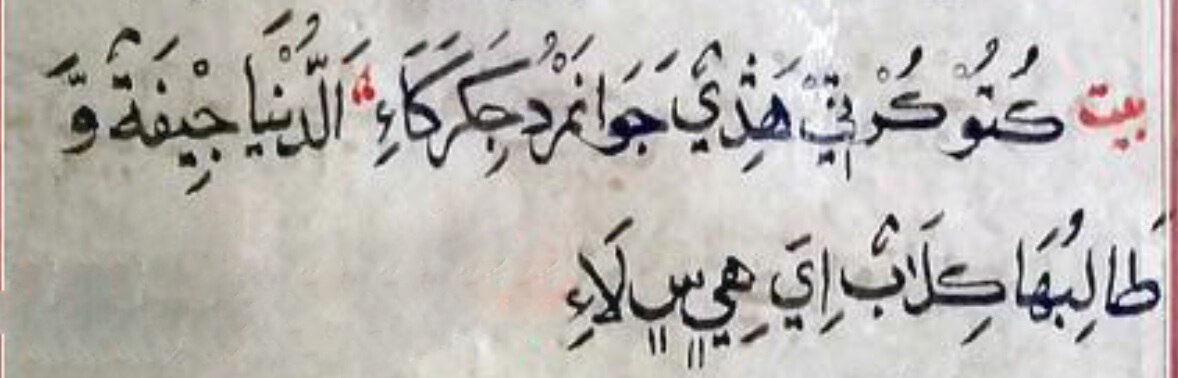 بيت كُتُوْ كُرْنِيْ هَڎِيْ جَوَانَمَرْدْ جِكَرْ كَاءِ اَلدُّنْيَا جِيْفَةٌ وَّ
طَالِبُهَا كِلَابٌ اِيَ هِيْ سٍ لَاءِ